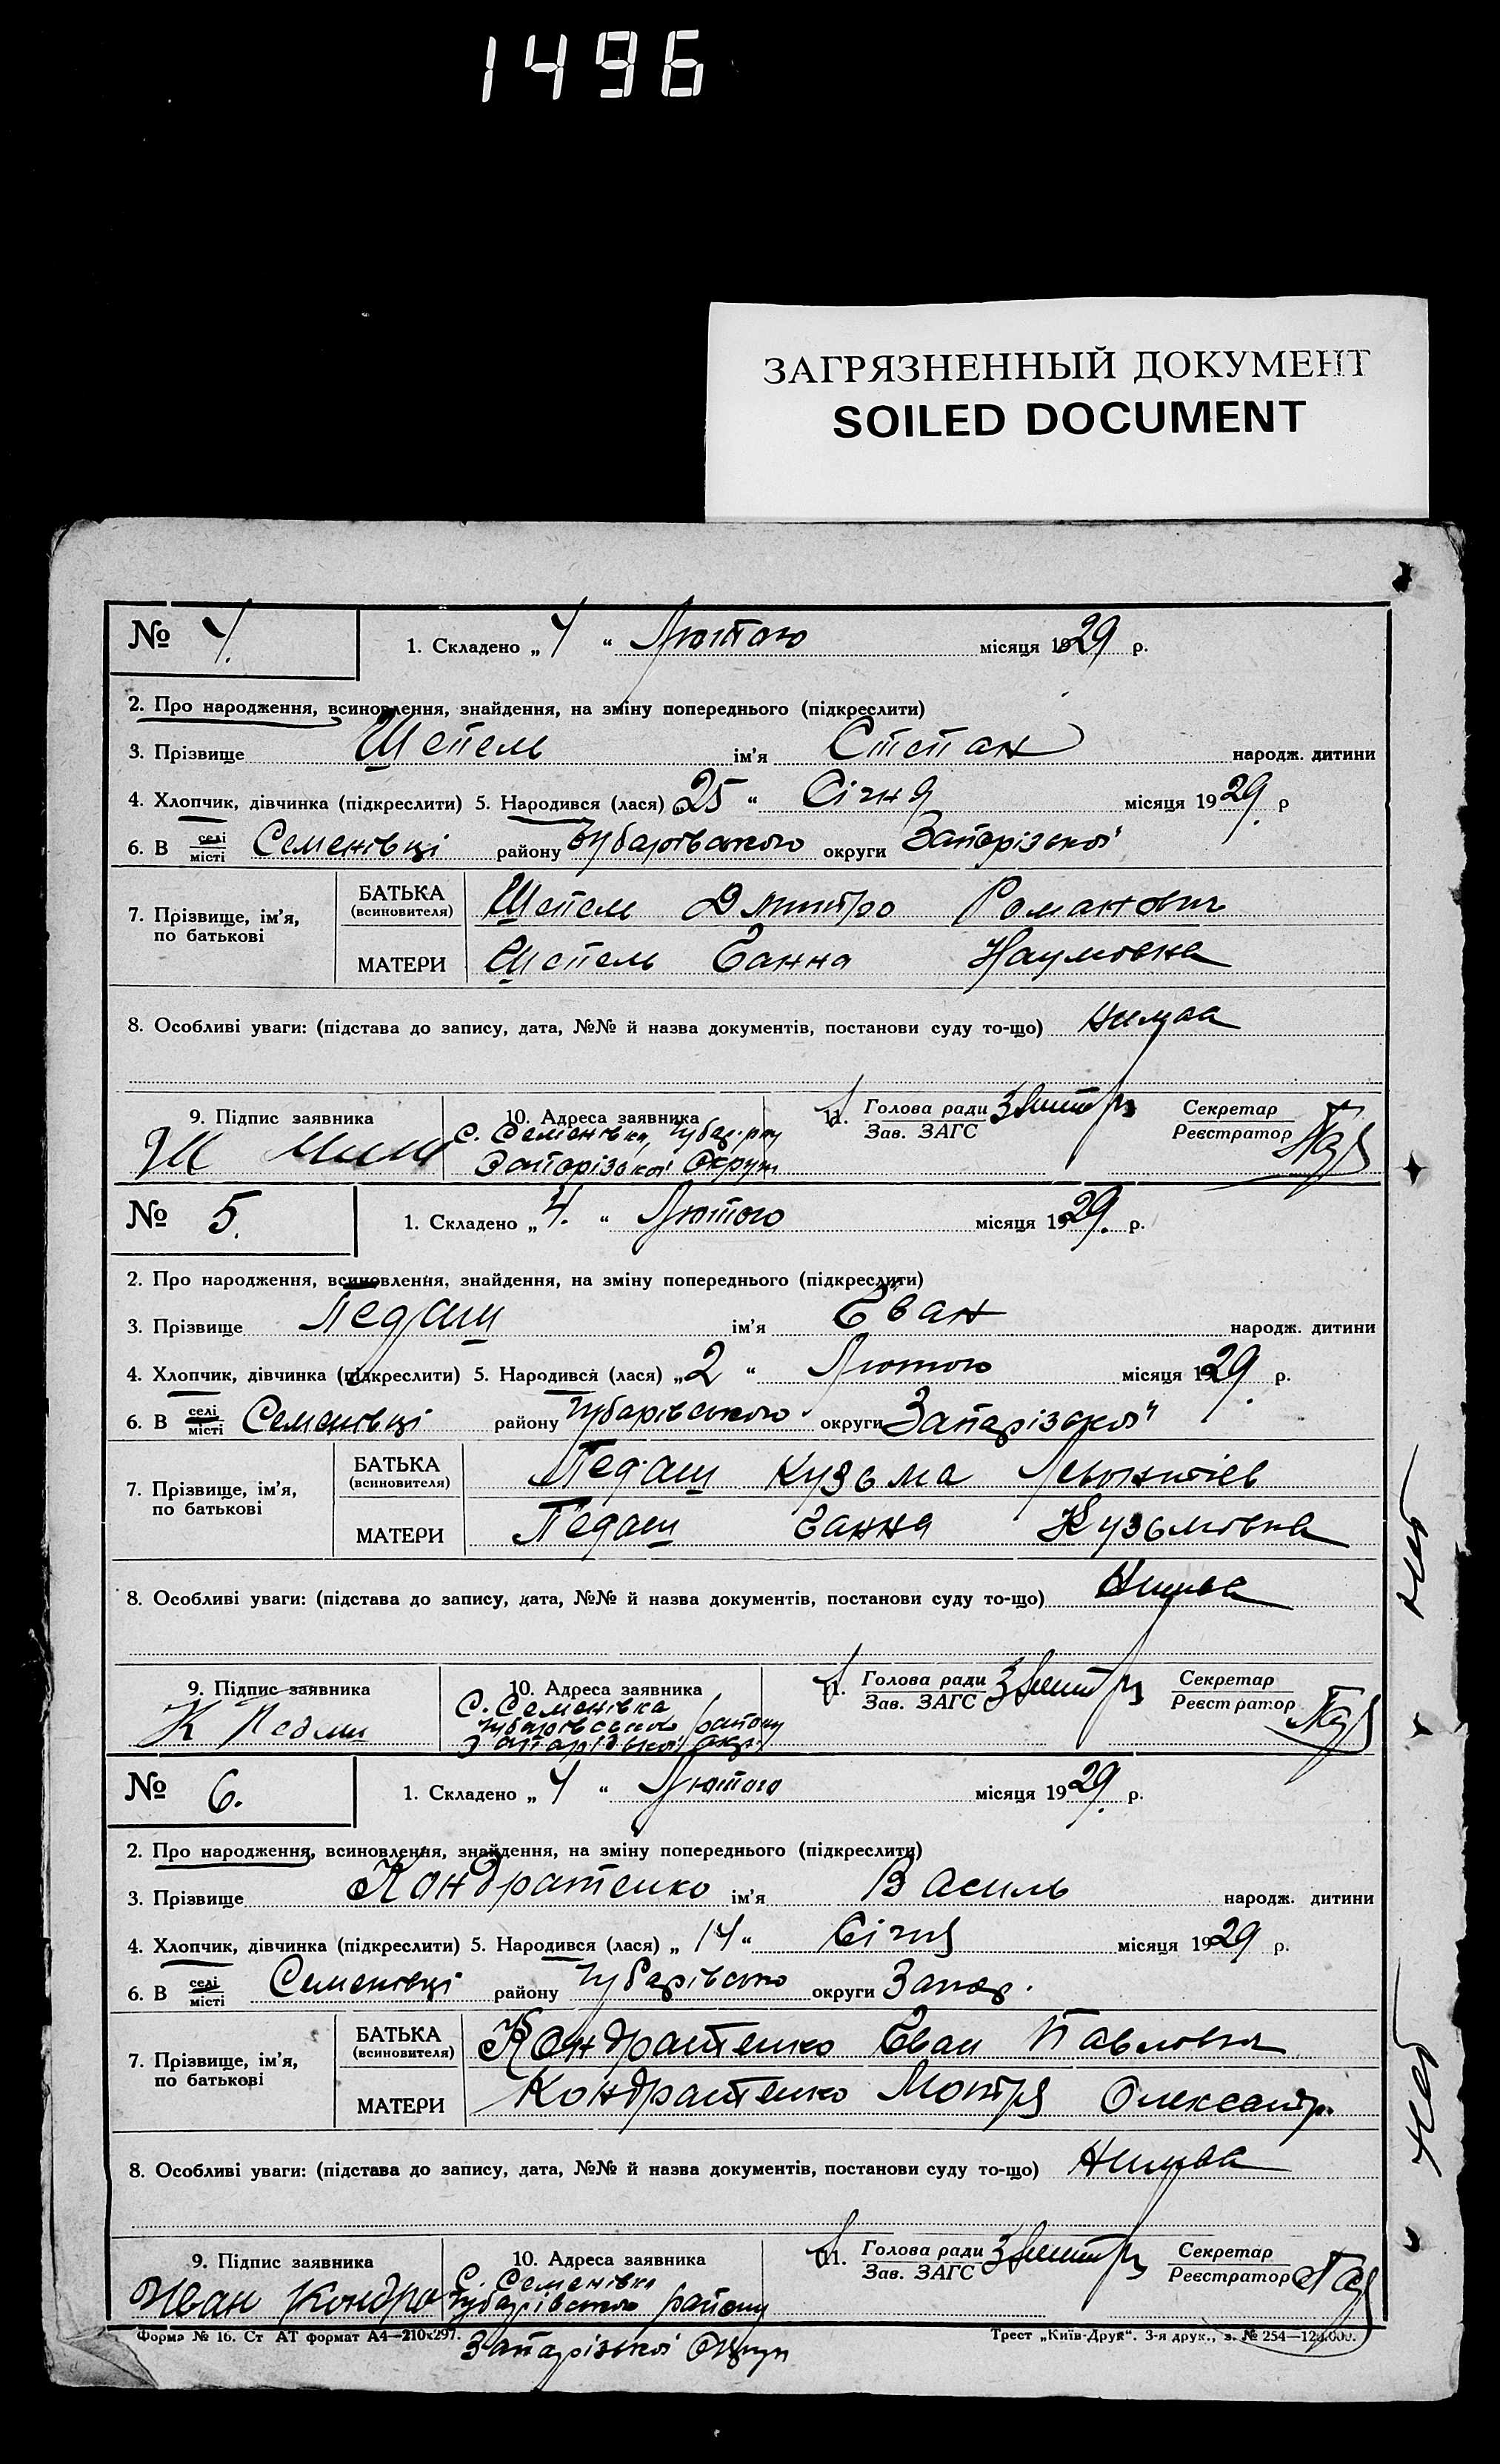 1496
ЗАГРЯЗНЕННЫЙ ДОКУМЕНТ
SOILED DOCUMENT
№ 4. 1. Складено „ 4 “ Лютого місяця 1929 р.
2. Про народження, всиновлення, знайдення, на зміну попереднього (підкреслити)
3. Прізвище Шепель ім'я Степан народж. дитини
4. Хлопчик, дівчинка (підкреслити) 5. Народився (лася) „25“ Січня місяця 1929. р
6. В селі/місті Семенівці району Чубарівського округи Запорізької
7. Прізвище, ім'я, по батькові
БАТЬКА (всиновителя) Шепель Дмитро Романович
МАТЕРИ Шепель Ганна Наумовна
8. Особливі уваги: (підстава до запису, дата, №№ й назва документів, постанови суду то-що) Нимаа
9. Підпис заявника 10. Адреса заявника 11. Голова ради Секретар
Зав. ЗАГС Реєстратор
С. Семенівка, Чубар. рну
Запорізької Округи
№ 5. 1. Складено „ 4. “ Лютого місяця 1929. р.
2. Про народження, всиновлення, знайдення, на зміну попереднього (підкреслити)
3. Прізвище Педаш ім'я Єван народж. дитини
4. Хлопчик, дівчинка (підкреслити) 5. Народився (лася) „2 “ Лютого місяця 1929. р.
6. В селі/місті Семенівці району Чубарівського округи Запорізької
7. Прізвище, ім'я, по батькові
БАТЬКА (всиновителя) Педаш Кузьма Левонтіев
МАТЕРИ Педаш Ганна Кузьмовна
8. Особливі уваги: (підстава до запису, дата, №№ й назва документів, постанови суду то-що) Нимва
9. Підпис заявника 10. Адреса заявника 11. Голова ради Секретар
Зав. ЗАГС Реєстратор
К Педаш С. Семенівка
Чубарівського району
Запорізької окр.
№ 6. 1. Складено „ 4 “ Лютого місяця 1929. р.
2. Про народження, всиновлення, знайдення, на зміну попереднього (підкреслити)
3. Прізвище Кондратенко ім'я Василь народж. дитини
4. Хлопчик, дівчинка (підкреслити) 5. Народився (лася) „ 14“ Січня місяця 1929 р.
6. В селі/місті Семенівці району Чубарівсько округи Запор.
7. Прізвище, ім'я, по батькові
БАТЬКА (всиновителя) Кондратенко Єван Павлович
МАТЕРИ Кондратенко Мотря Олександр.
8. Особливі уваги: (підстава до запису, дата, №№ й назва документів, постанови суду то-що) Нимва
9. Підпис заявника 10. Адреса заявника 11. Голова ради Секретар
Зав. ЗАГС Реєстратор
Иван Кондра С. Семенівка
Чубарівського району
Запорізької Округи
Форма № 16. Ст АТ формат А4—210х297. Трест „Київ-Друк“. 3-я друк., з. № 254—